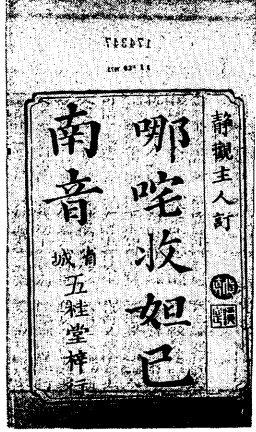 靜觀主人訂
哪咤收妲己
南音
省城五桂堂梓行